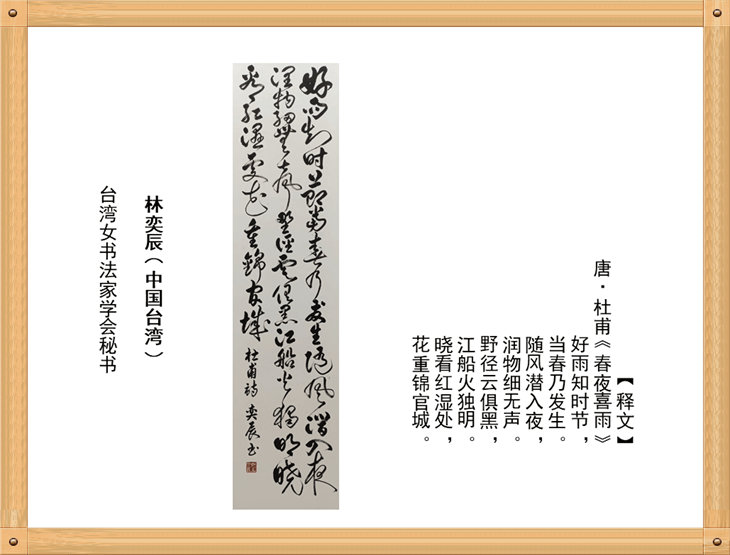 【释文】
唐·杜甫《春夜喜雨》
好雨知时节，
当春乃发生。
随风潜入夜，
润物细无声。
野径云俱黑，
江船火独明。
晓看红湿处，
花重锦官城。
好雨知时节当春乃发生随风潜入夜
润物细无声野径云俱黑江船火独明晓
看红湿处花重锦官城
杜甫诗 奕辰书
林奕辰（中国台湾）
台湾女书法家学会秘书